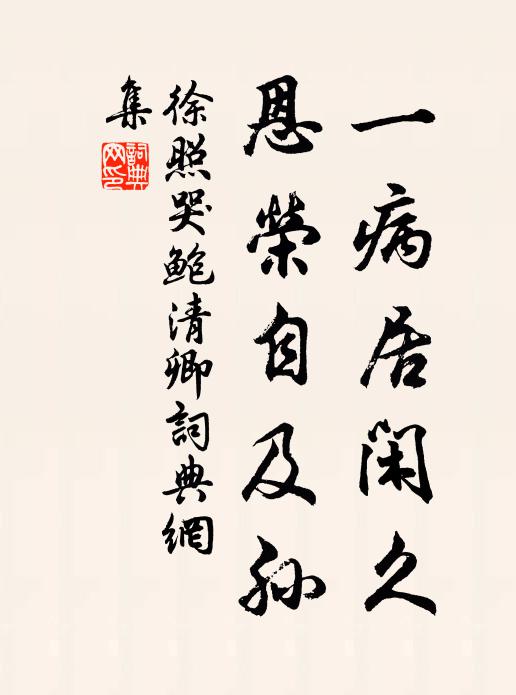 一病居閑久
恩榮自及孫
徐照哭鮑清卿詞典網
集
詞典網印